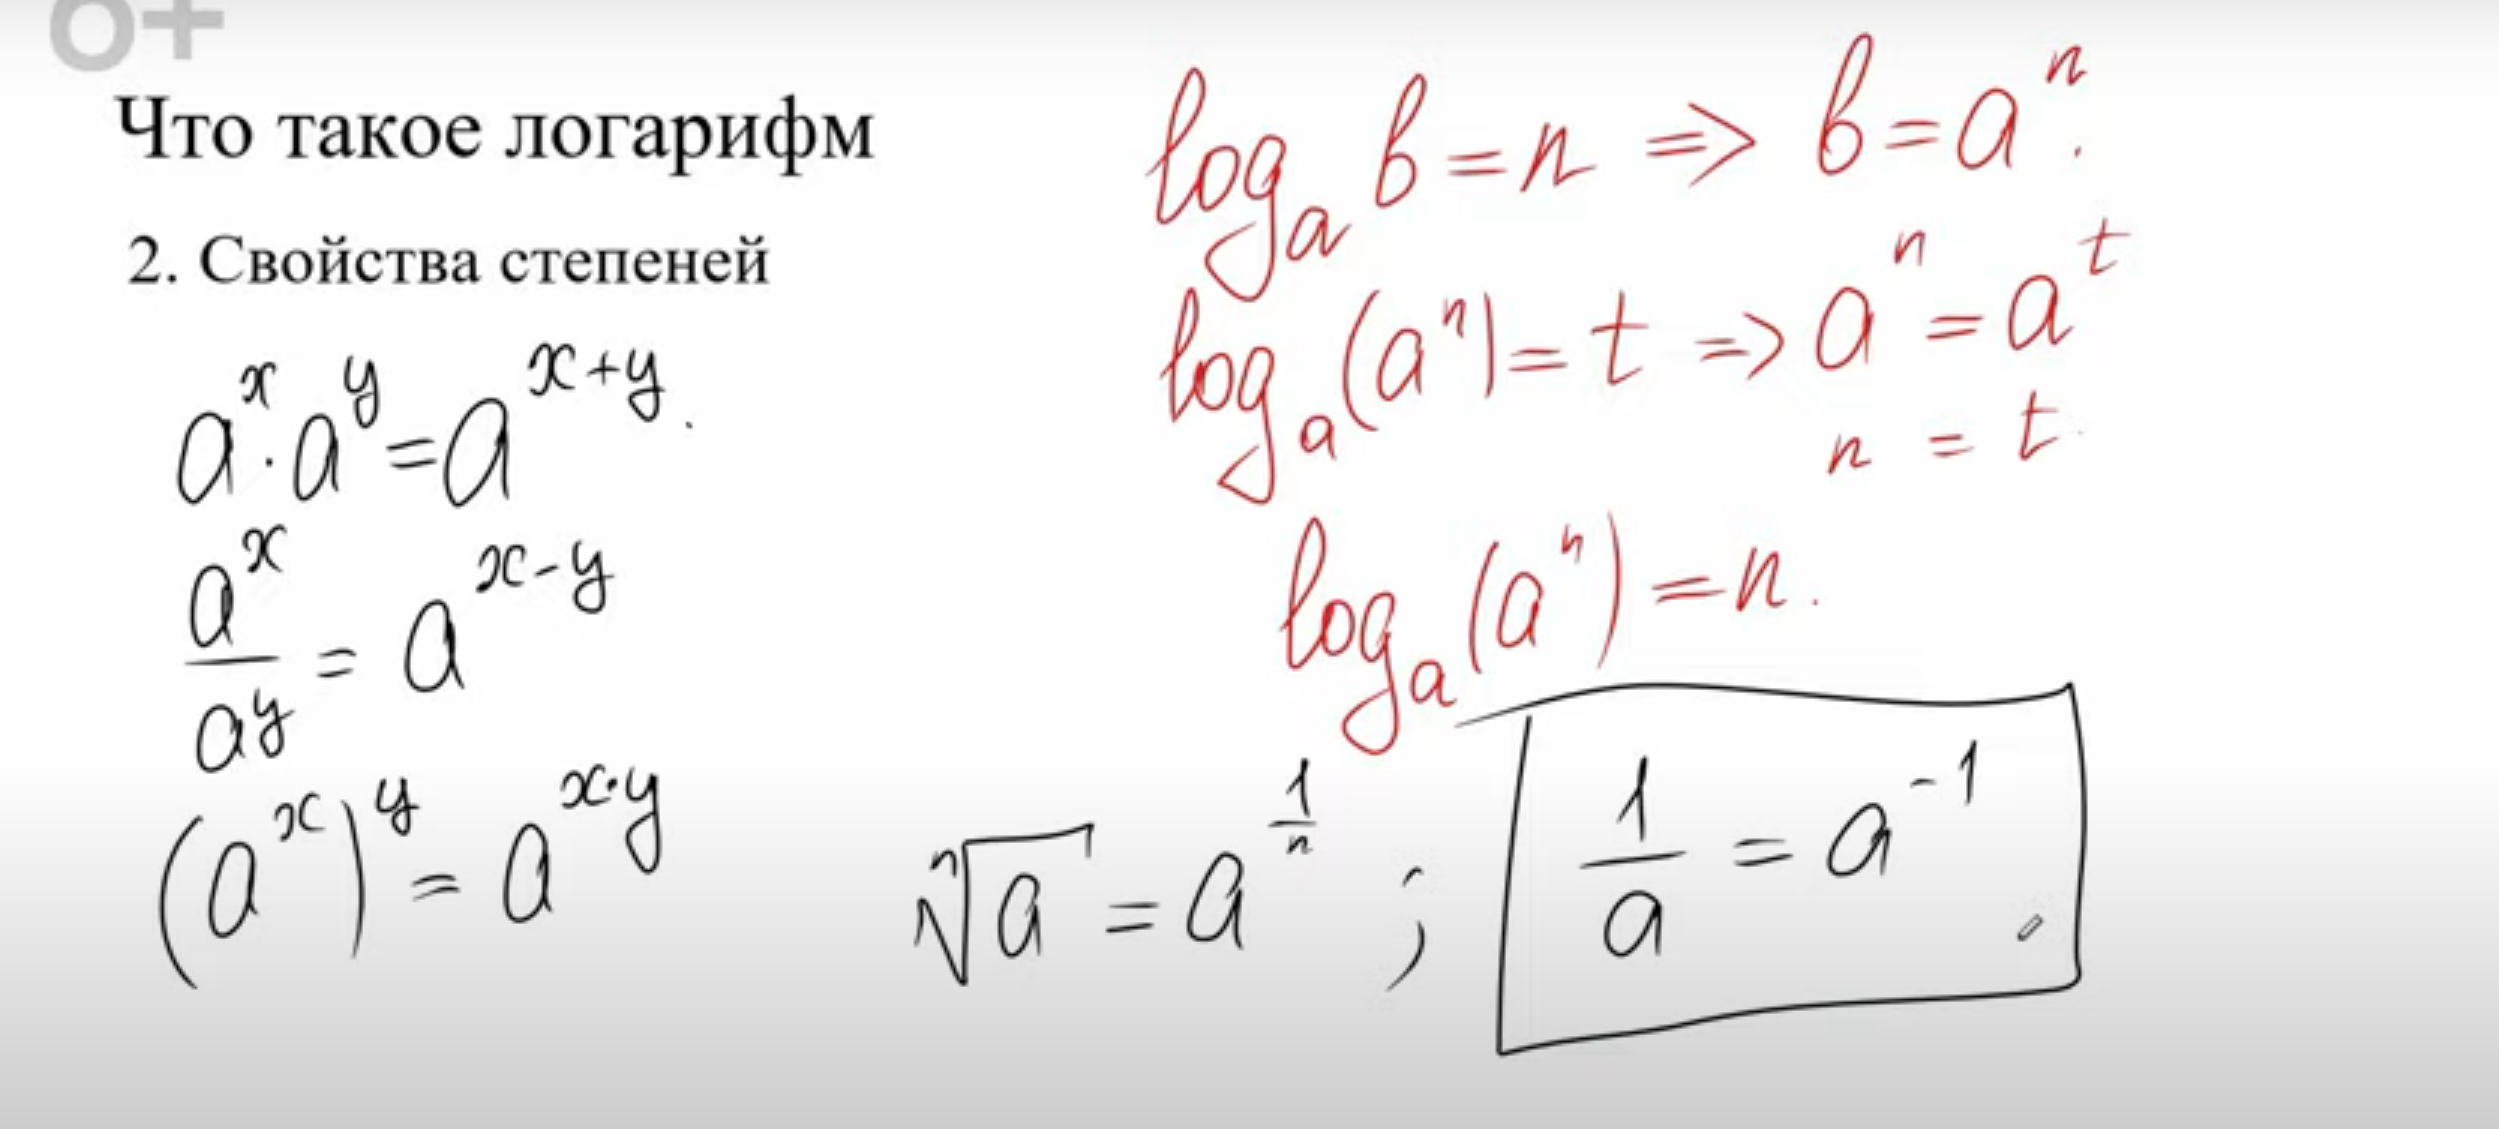 6+
Что такое логарифм
2. Свойства степеней
aˣ · aʸ = aˣ⁺ʸ.
aˣ/aʸ = aˣ⁻ʸ
(aˣ)ʸ = aˣ·ʸ
logₐ b = n ⇒ b = aⁿ.
logₐ (aⁿ) = t ⇒ aⁿ = aᵗ
n = t.
logₐ (aⁿ) = n.
ⁿ√a = a^(1/n) ; 1/a = a⁻¹